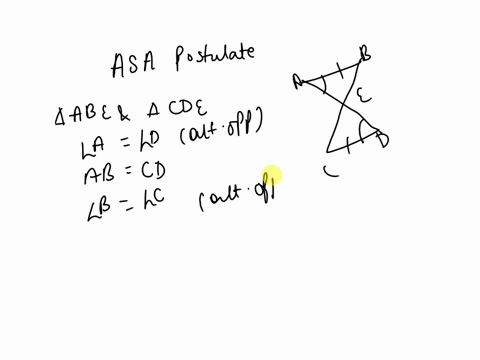 ASA Postulate
ΔABE & ΔCDE
∠A = ∠D (alt. opp)
AB = CD
∠B = ∠C (alt. op
A
B
E
D
C